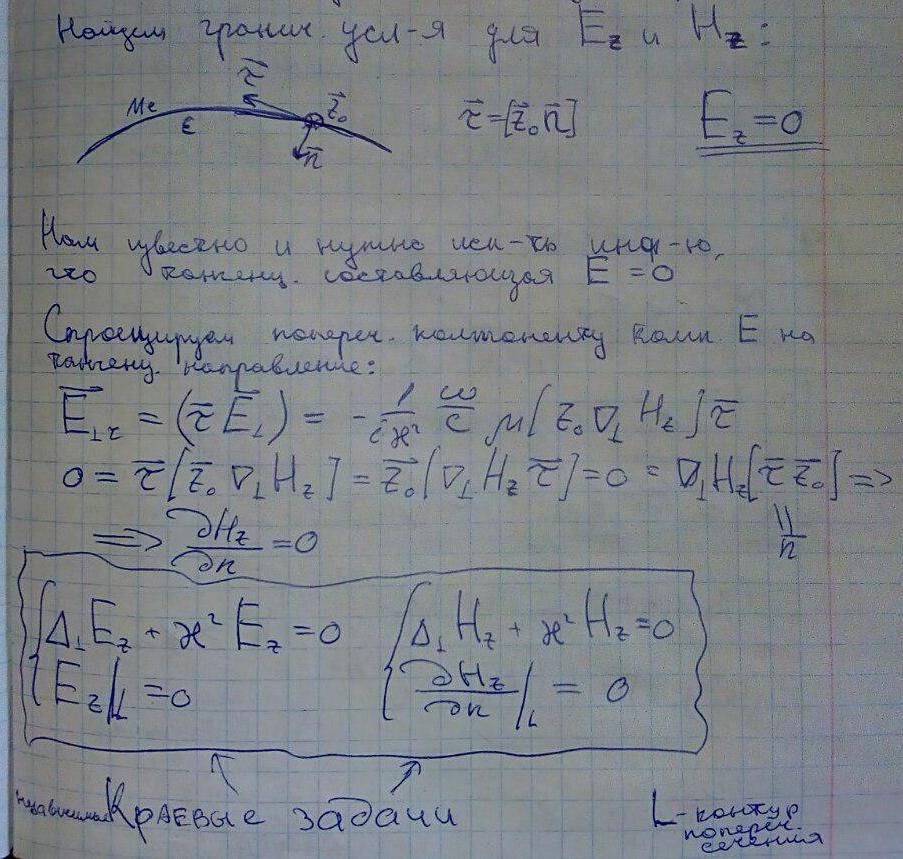 Найдем гранич. усл-я для E_z и H_z:
τ⃗
Me
z⃗₀
ε
n⃗
τ⃗=[z⃗₀n⃗]
E_z=0
Нам известно и нужно исп-ть инф-ю,
что танженц. составляющая E =0
Спроецируем попереч. компоненту комп. E на
танженц. направление:
E⃗_⊥τ = (τ⃗E⃗_⊥) = - 1/(iϰ²) ω/c μ[z₀∇_⊥H_z]τ⃗
0 = τ⃗[z⃗₀∇_⊥H_z] = z⃗₀[∇_⊥H_z τ⃗]=0 = ∇_⊥H_z[τ⃗z⃗₀] =>
=> ∂H_z/∂n =0
||
n⃗
{Δ_⊥E_z + ϰ²E_z =0
E_z|_L =0
{Δ_⊥H_z + ϰ²H_z=0
∂H_z/∂n|_L = 0
независимые Краевые задачи
L-контур
попереч.
сечения